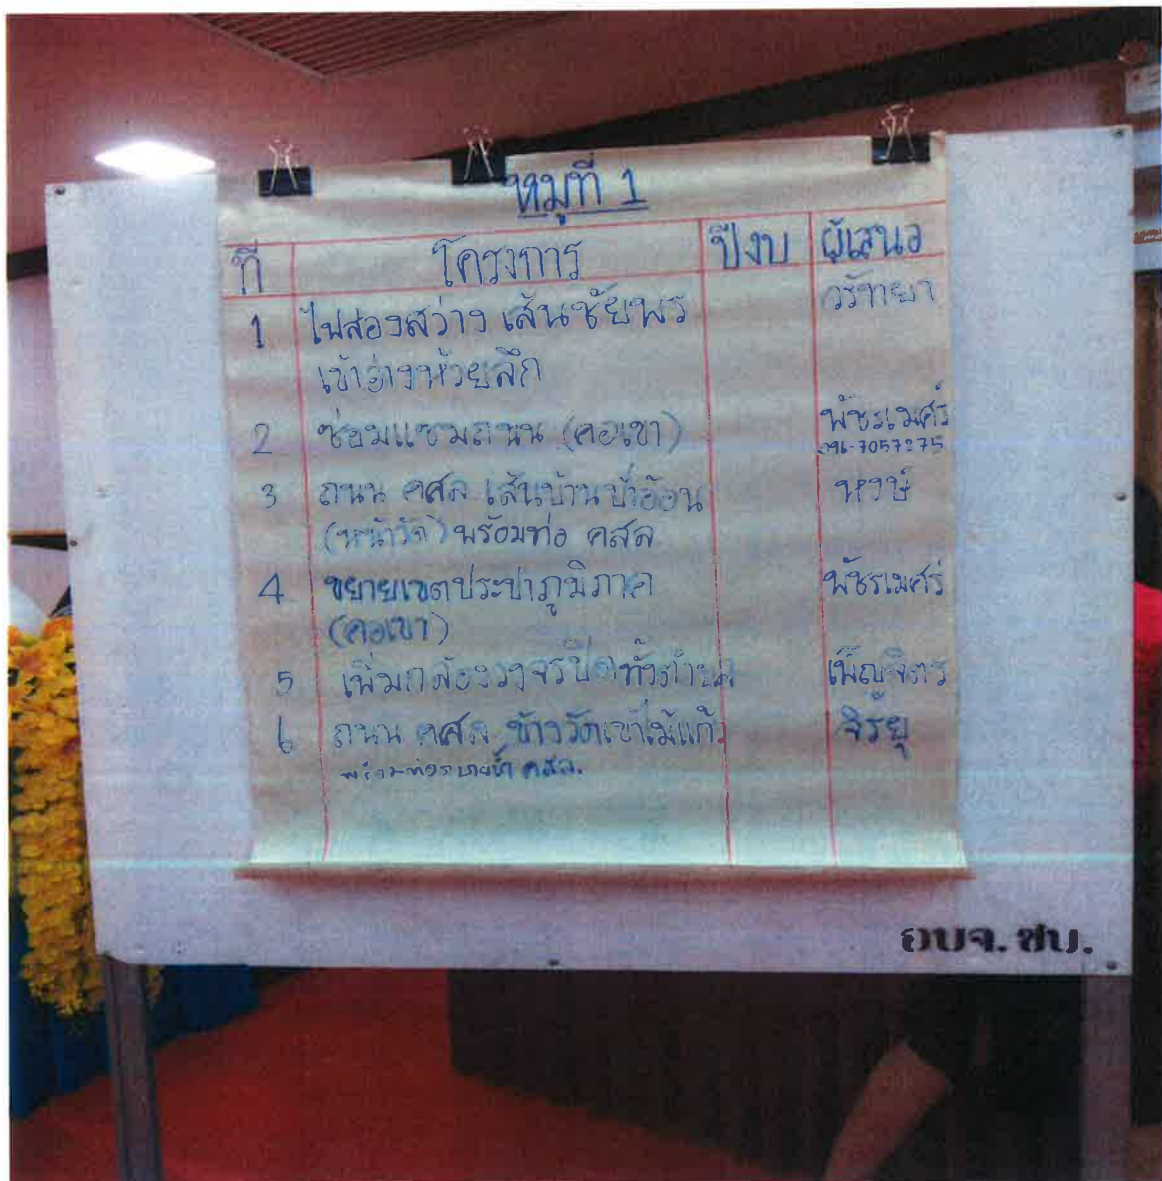 หมู่ที่ 1
ที่ โครงการ ปีงบ ผู้เสนอ
1 ไฟส่องสว่าง เส้นชัยพร วรัทยา
เข้าอ่างห้วยลึก
2 ซ่อมแซมถนน (คอเขา) พัชระเมศร์
096-7057275
3 ถนน คสล เส้นบ้านป้าอ้อน หงษ์
(หน้าวัด) พร้อมท่อ คสล
4 ขยายเขตประปาภูมิภาค พัชรเมศร์
(คอเขา)
5 เพิ่มกล้องวงจรปิดทั้งตำบล เพ็ญจิตร
6 ถนน คสล ข้างวัดเขาไม้แก้ว จิรยุ
พร้อมท่อระบายน้ำ คสล.
อบจ. ชบ.